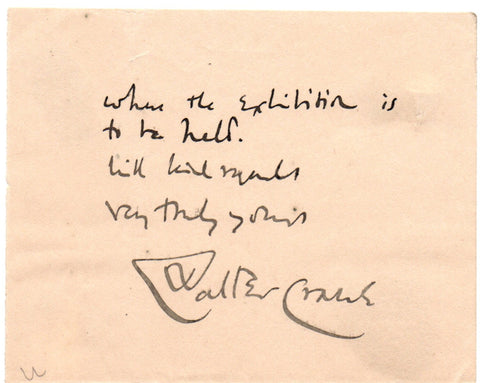 where the exhibition is
to be held.
with kind regards
very truly yours
Walter Crane